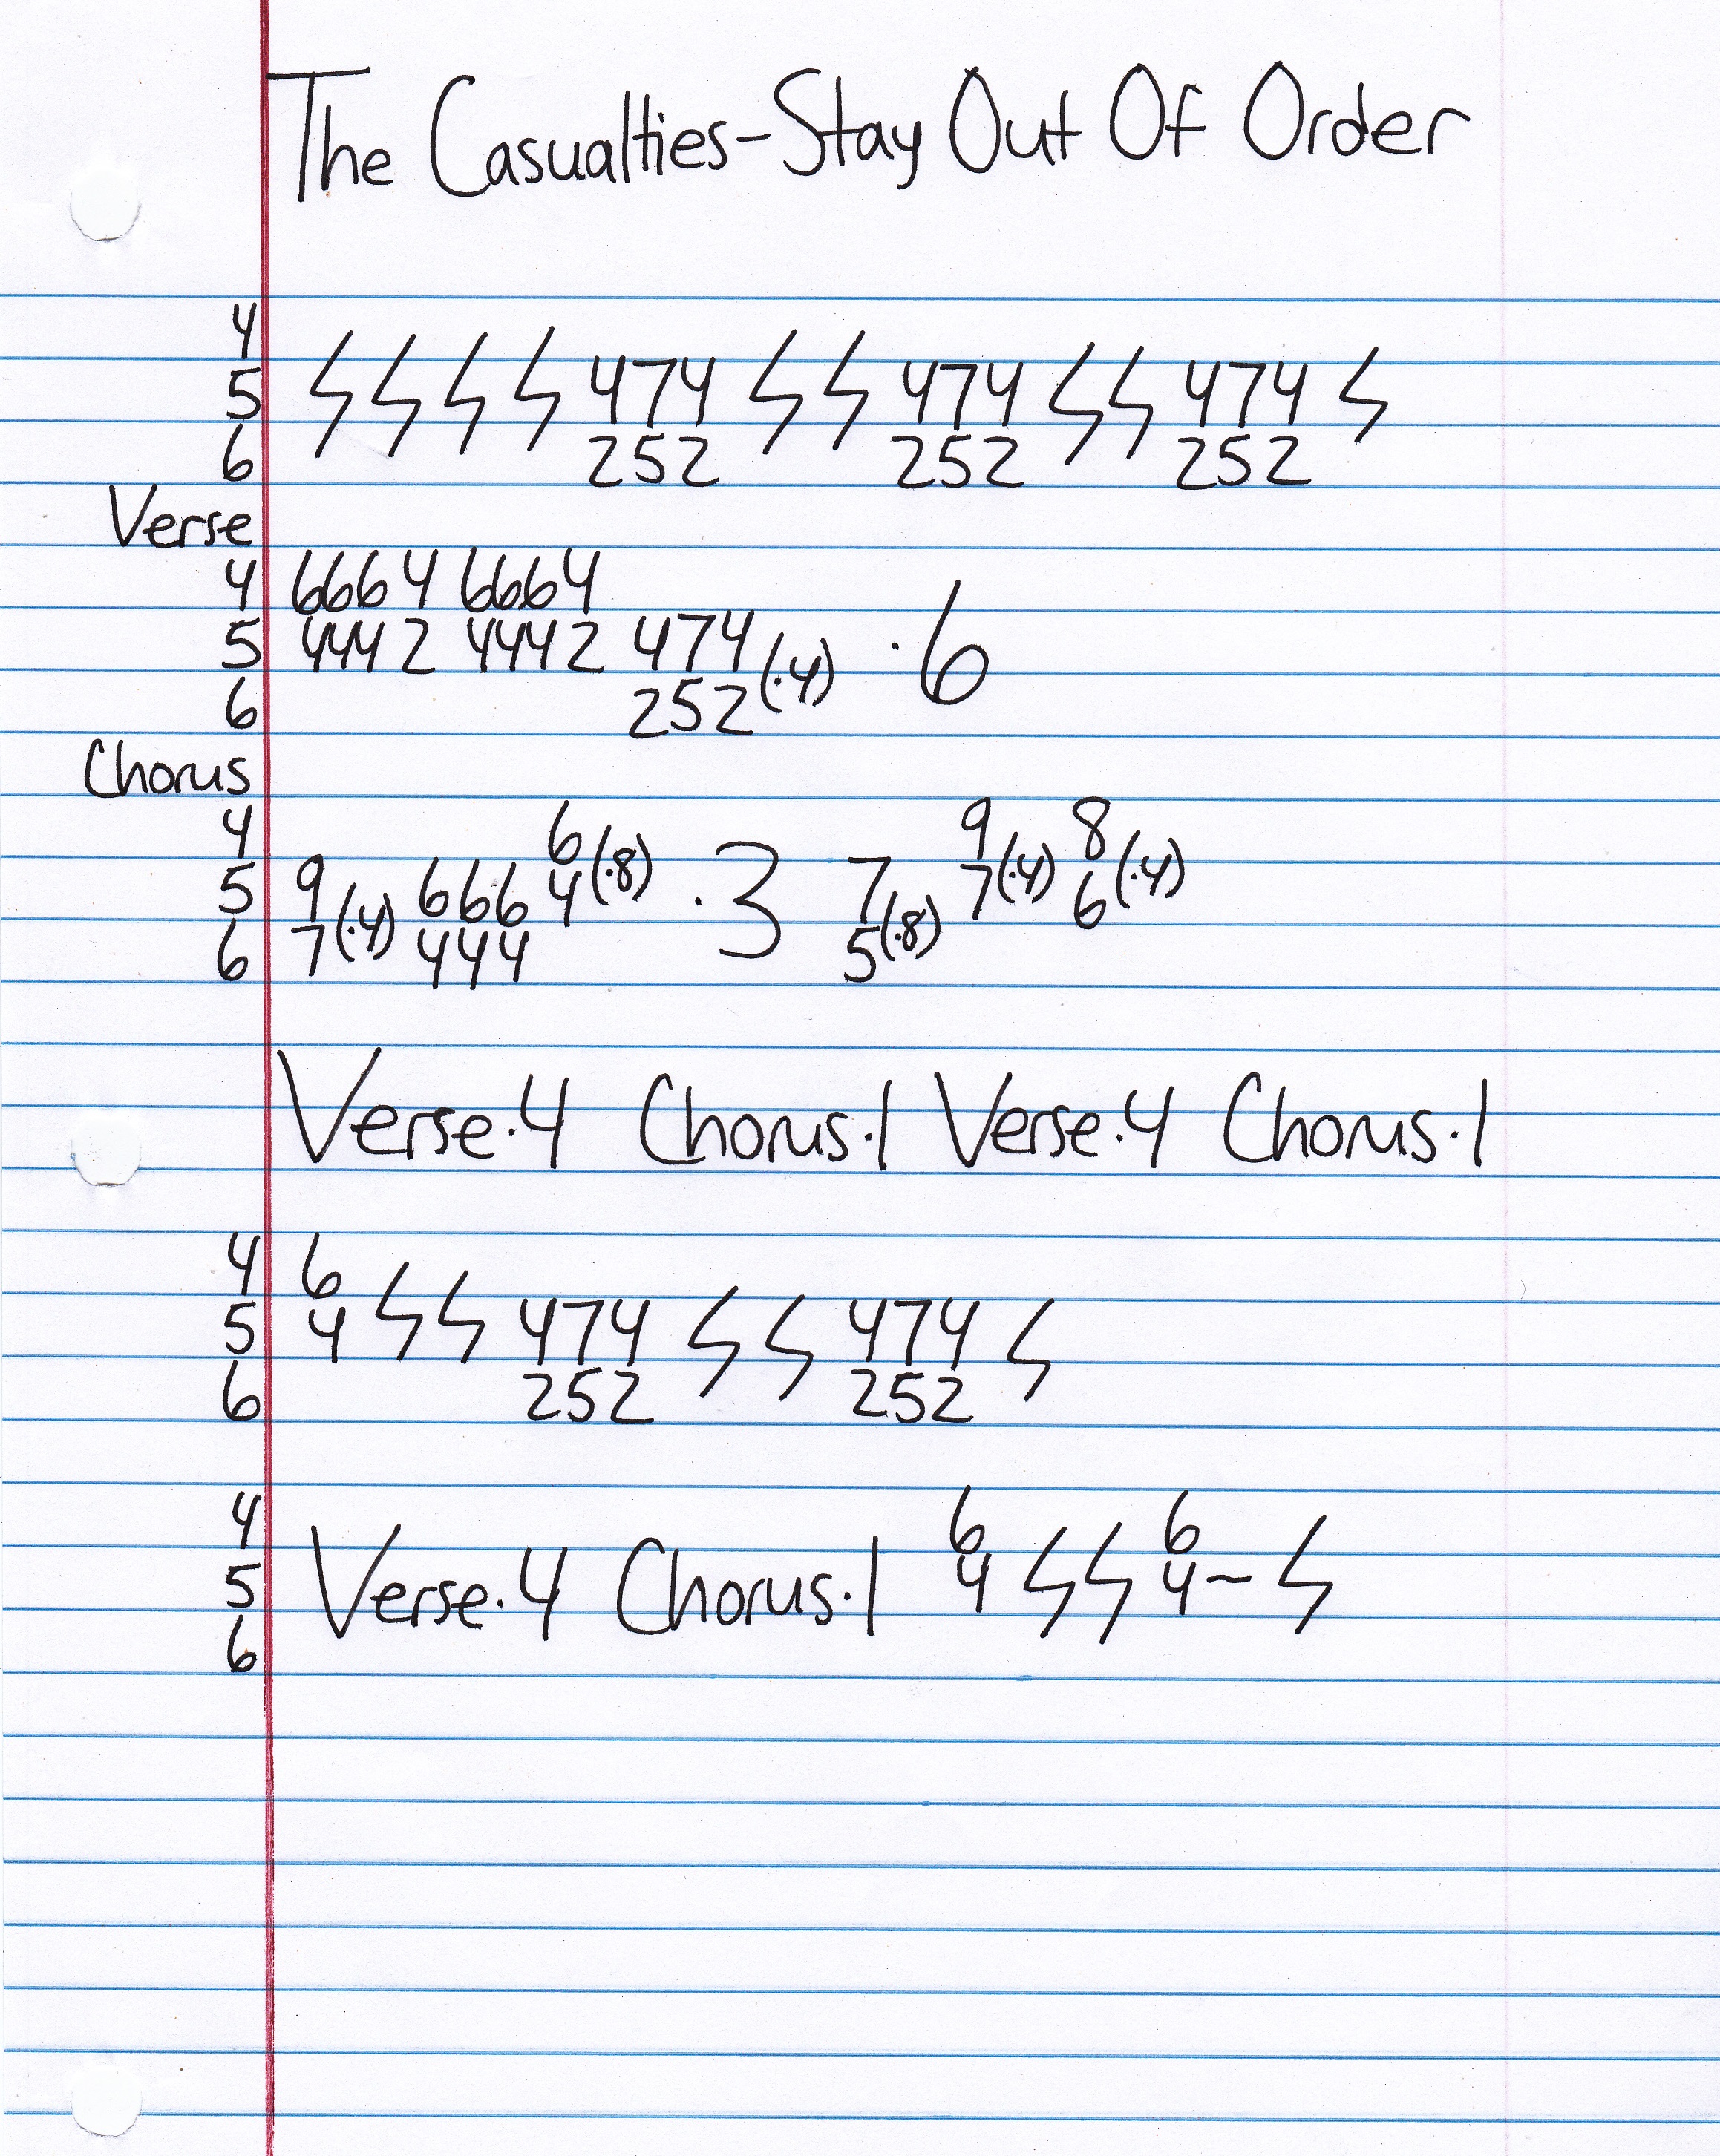 The Casualties-Stay Out Of Order
4
5 ϟ ϟ ϟ ϟ 474 ϟ ϟ 474 ϟ ϟ 474 ϟ
6 252 252 252
Verse
4 6664 6664
5 4442 4442 474 (·4) ·6
6 252
Chorus
4 6(·8) 9 8
5 9 666 4 ·3 7 7(·4) 6(·4)
6 7(·4) 444 5(·8)
Verse·4 Chorus·1 Verse·4 Chorus·1
4 6
5 4 ϟ ϟ 474 ϟ ϟ 474 ϟ
6 252 252
4 6 6
5 Verse·4 Chorus·1 4 ϟ ϟ 4~ ϟ
6